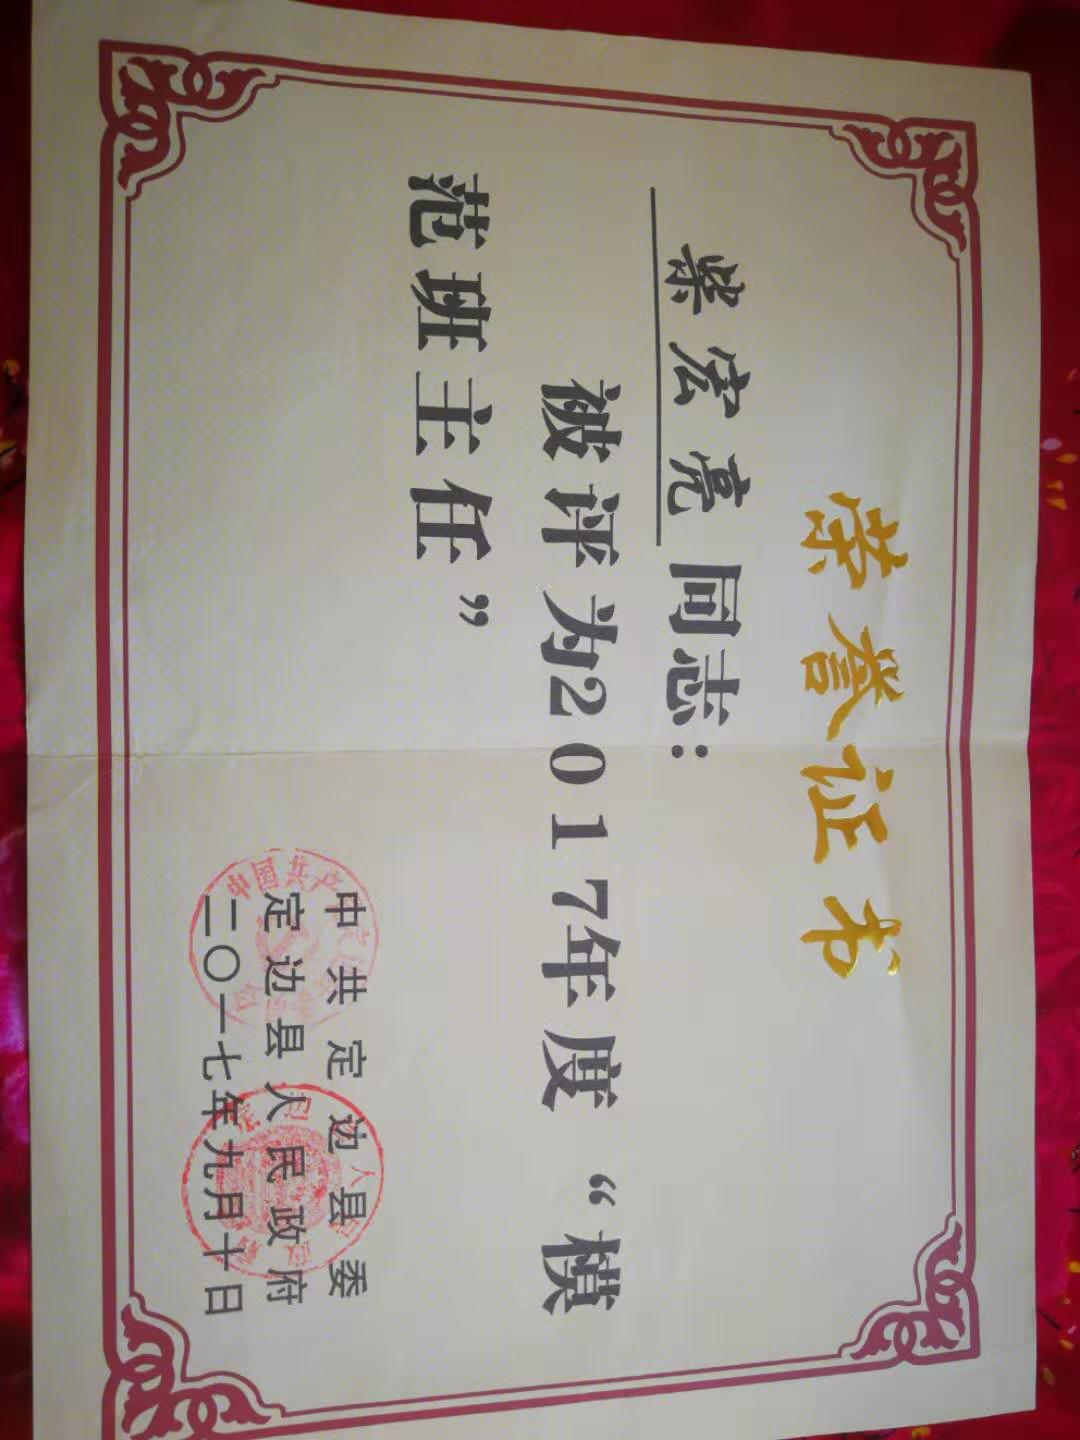 荣誉证书
柴宏亮同志：
被评为2017年度“模
范班主任”
中共定边县委
定边县人民政府
二〇一七年九月十日